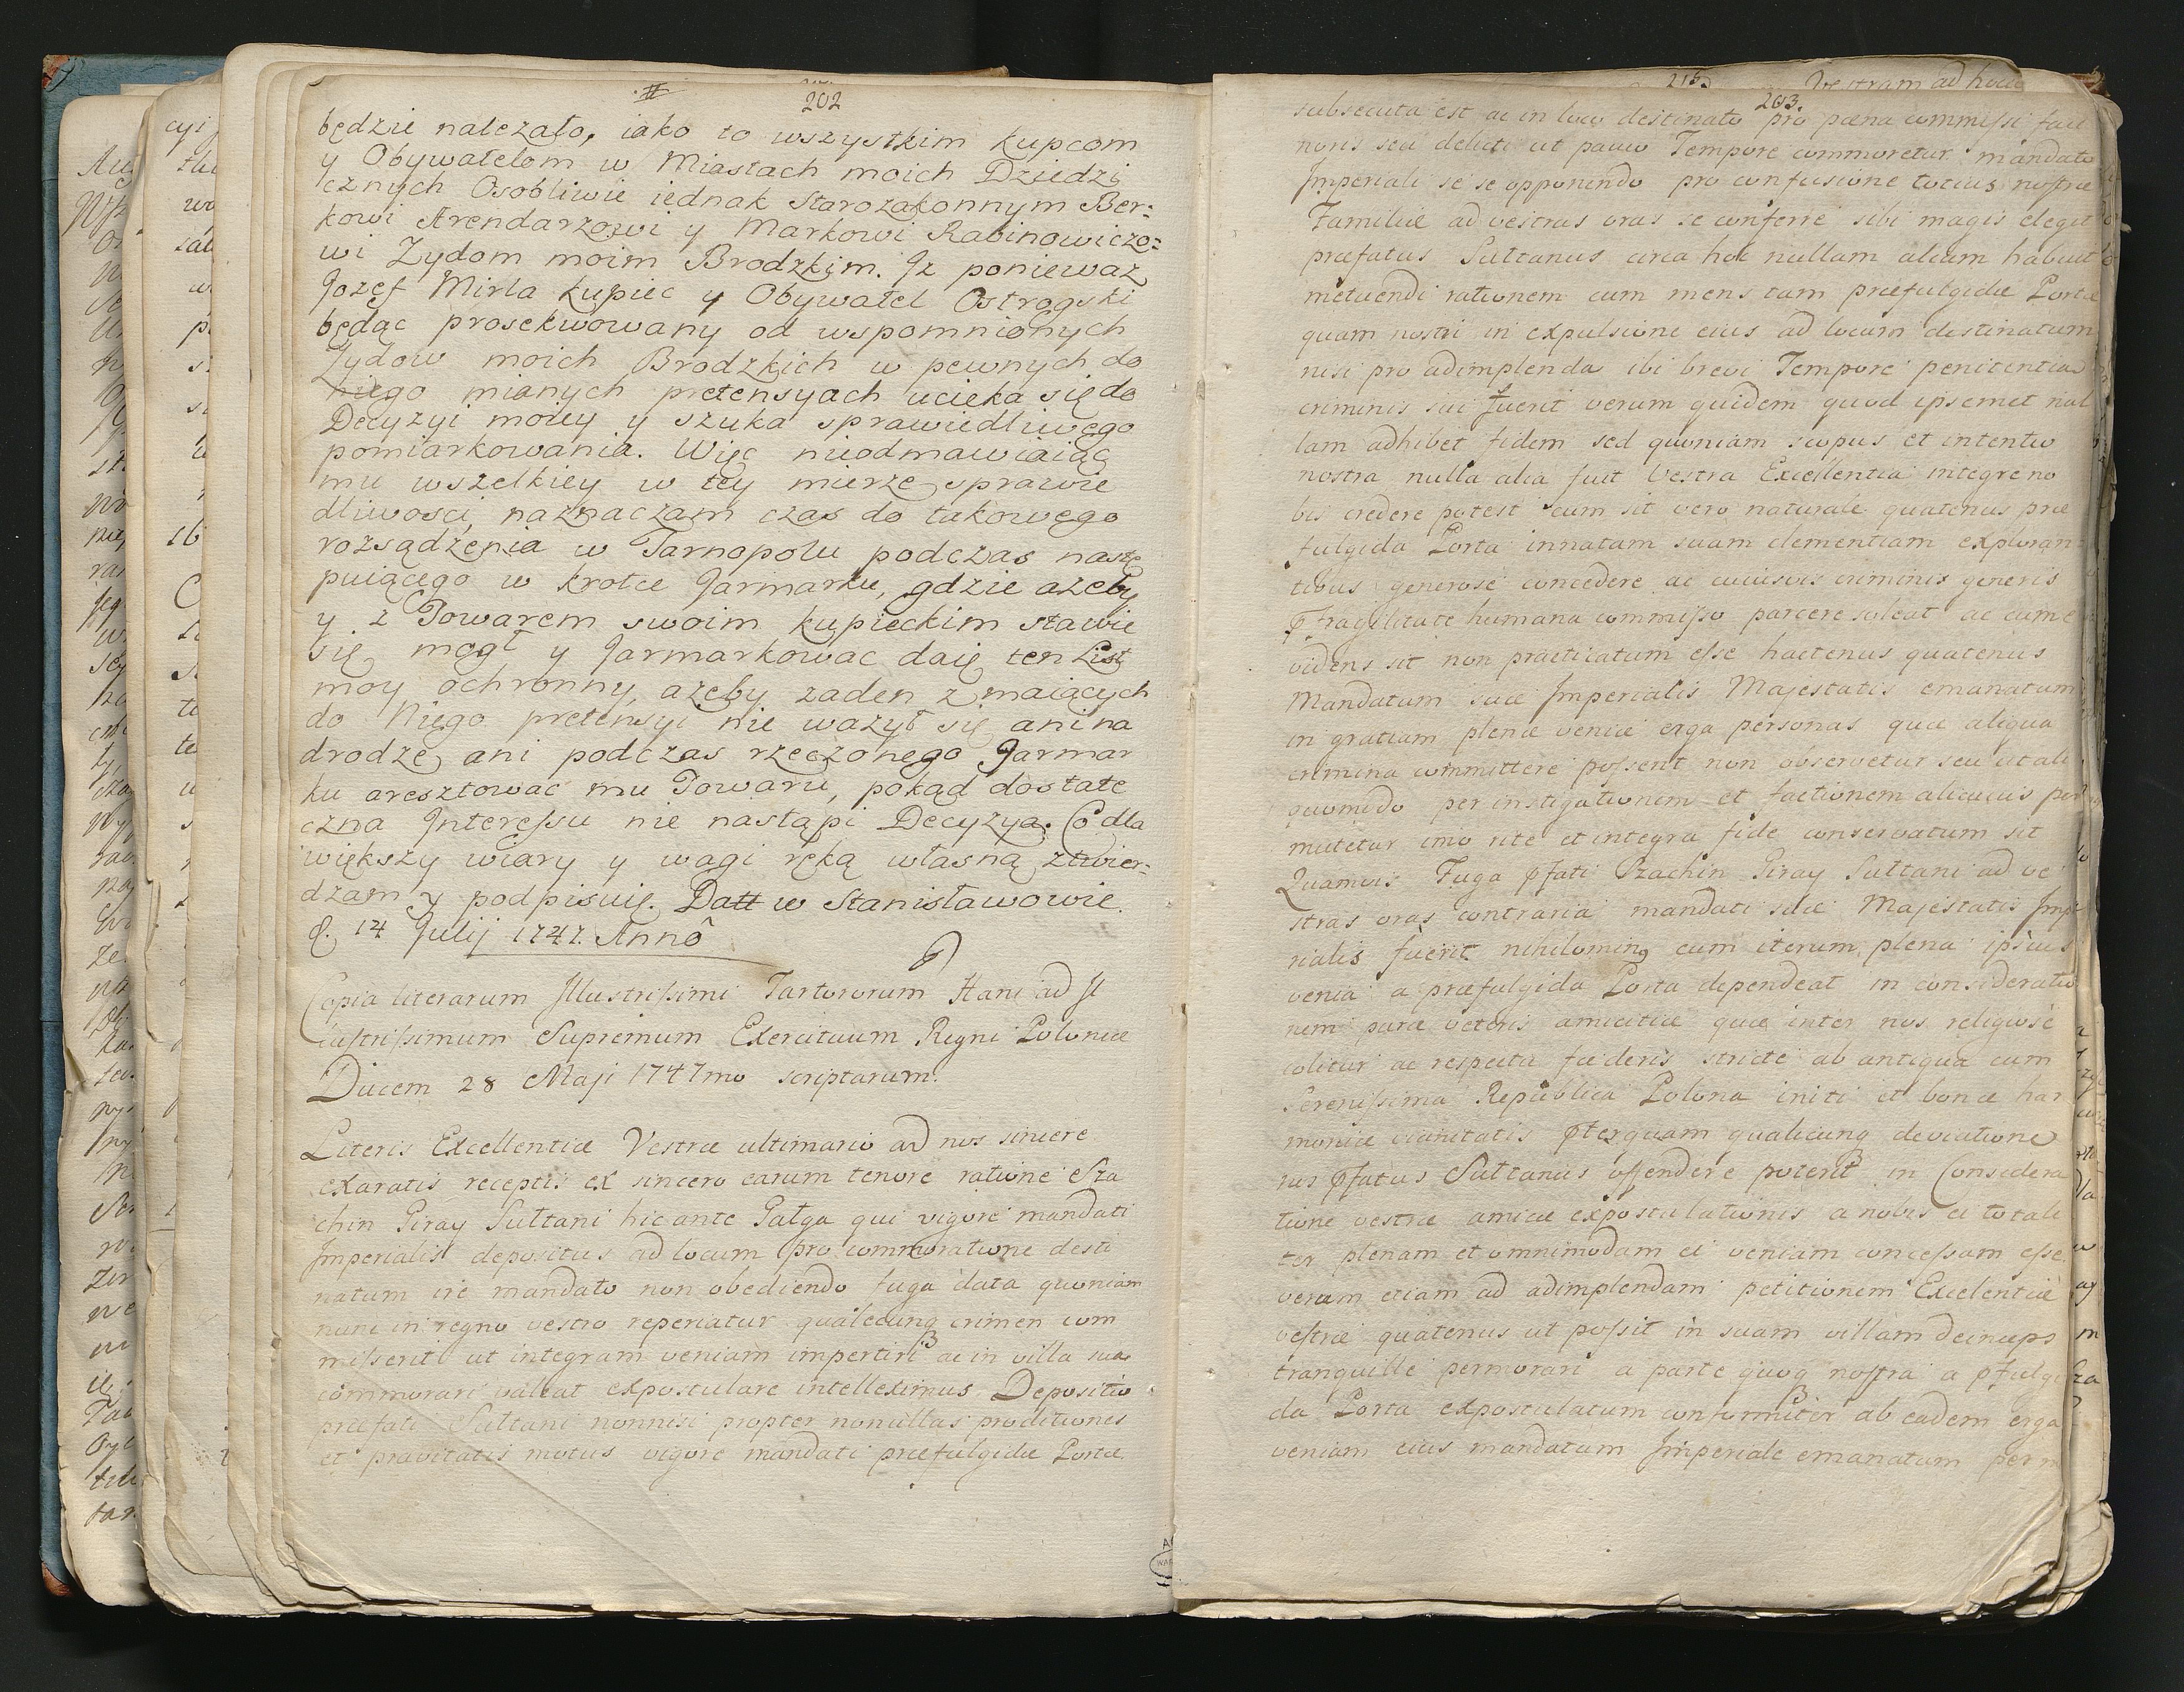 202
będzie nalezało, iako to wszystkim kupcom
y Obywatelom w Miastach moich Dziedzi
cznych Osobliwie iednak Starozakonnym Ber:
kowi Arendarzowi y Markowi Rabinowiczo:
wi Zydom moim Brodzkim. Jz poniewaz
Jozef Mirla kupiec y Obywatel Ostrogski
będąc prosekwowany od wspomnionych
Zydow moich Brodzkich w pewnych do
niego mianych pretensyach ucieka się do
Decyzyi moiey y szuka sprawiedliwego
pomiarkowania. Więc nieodmawiaiąc
mu wszelkiey w tey mierze sprawie
dliwosci naznaczam czas do takowego
rozsądzenia w Tarnopolu podczas nastę
puiącego w krotce Jarmarku, gdzie azeby
y z Towarem swoim kupieckim stawic
się mogł y Jarmarkowac daię ten List
moy ochronny, azeby zaden z maiących
do Niego pretensyi nie wazył się ani na
drodze ani podczas rzeczonego Jarmar
ku aresztowac mu Towaru, pokąd dostate
czna Jnteressu nie nastąpi Decyzya. Co dla
większy wiary y wagi ręką własną ztwier:
dzam y podpisuię. Datt w Stanisławowie.
d. 14 Julij 1747. Annô
Copia literarum Jllustrissimi Tartororum Hani ad Jl
lustrissimum Supremum Exercituum Regni Poloniæ
Ducem 28 Maji 1747mo scriptarum.
Literis Excellentiæ Vestræ ultimario ad nos sincere
exaratis receptis ex sincero earum tenore ratione Sza
chin Giray Sultani hic ante Gałga qui vigore mandati
Jmperialis depositus ad locum pro commoratione desti
natum ire mandato non obediendo fuga data quoniam
nunc in regno vestro reperiatur qualecunq crimen com
miserit ut integram veniam impertiri ac in villa sua
commorari valeat expostulare intelleximus. Depositio
præfati Sultani nonnisi propter nonullas proditiones
et pravitatis motus vigore mandati præfulgidæ Portæ
215.
Vestram ad hocce
203.
subsecuta est ac in loco destinato pro pœna commissi faci
noris seu delicti ut pauco Tempore commoretur mandato
Jmperiali se se opponendo pro confusione totius nostræ
Familiæ ad vestras oras se conferre sibi magis elegit
præfatus Sultanus circa hoc nullam aliam habuit
metuendi rationem cum mens tam præfulgidæ Portæ
quam nostri in expulsione eius ad locum destinatum
nisi pro adimplenda ibi brevi Tempore penitentia
criminis sui fuerit verum quidem quod ipsemet nul
lam adhibet fidem sed quoniam scopus et intentio
nostra nulla alia fuit Vestra Excellentia integre no
bis credere potest cum sit vero naturale quatenus præ
fulgida Porta innatam suam clementiam exploran
tibus generose concedere ac cuiusvis criminis generis
fragilitate humana commisso parcere soleat ac cum e
videns sit non practicatum esse hactenus quatenus
Mandatum suæ Jmperialis Majestatis emanatum
in gratiam plenæ veniæ erga personas quæ aliqua
crimina committere possent non observetur seu ut ali
quomodo per instigationem et factionem alicuius per
mutetur imo rite et integra fide conservatum sit
Quamvis Fuga pfati Szachin Giray Sultani ad ve
stras oras contraria mandati suæ Majestatis Jmpe
rialis fuerit nihilominq cum iterum plena ipsius
venia a præfulgida Porta dependeat in consideratio
nem paræ veteris amicitiæ quæ inter nos religiose
colitur ac respectu fœderis stricte ab antiqua cum
Serenissima Republica Polona initi et bonæ har
moniæ vicinitatis pterquam qualicunq deviatione
nos pfatus Sultanus offendere poterit in Considera
tione vestræ amicæ expostulationis a nobis ei totali
ter plenam et omnimodam ei veniam concessam esse
verum etiam ad adimplendam petitionem Excelentiæ
vestræ quatenus ut possit in suam villam deinceps
tranquille permorari a parte quoq nostra a pfulgi
da Porta expostulatum conformiter ab eadem erga
veniam eius mandatum Jmperiale emanatum per n